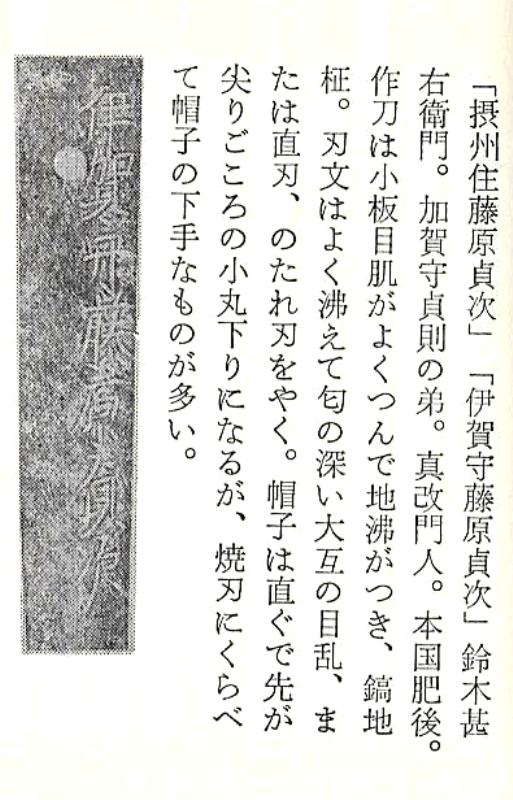 「摂州住藤原貞次」「伊賀守藤原貞次」鈴木甚
右衛門。加賀守貞則の弟。真改門人。本国肥後。
作刀は小板目肌がよくつんで地沸がつき、鎬地
柾。刃文はよく沸えて匂の深い大互の目乱、ま
たは直刃、のたれ刃をやく。帽子は直ぐで先が
尖りごころの小丸下りになるが、焼刃にくらべ
て帽子の下手なものが多い。
伊賀守藤原貞次